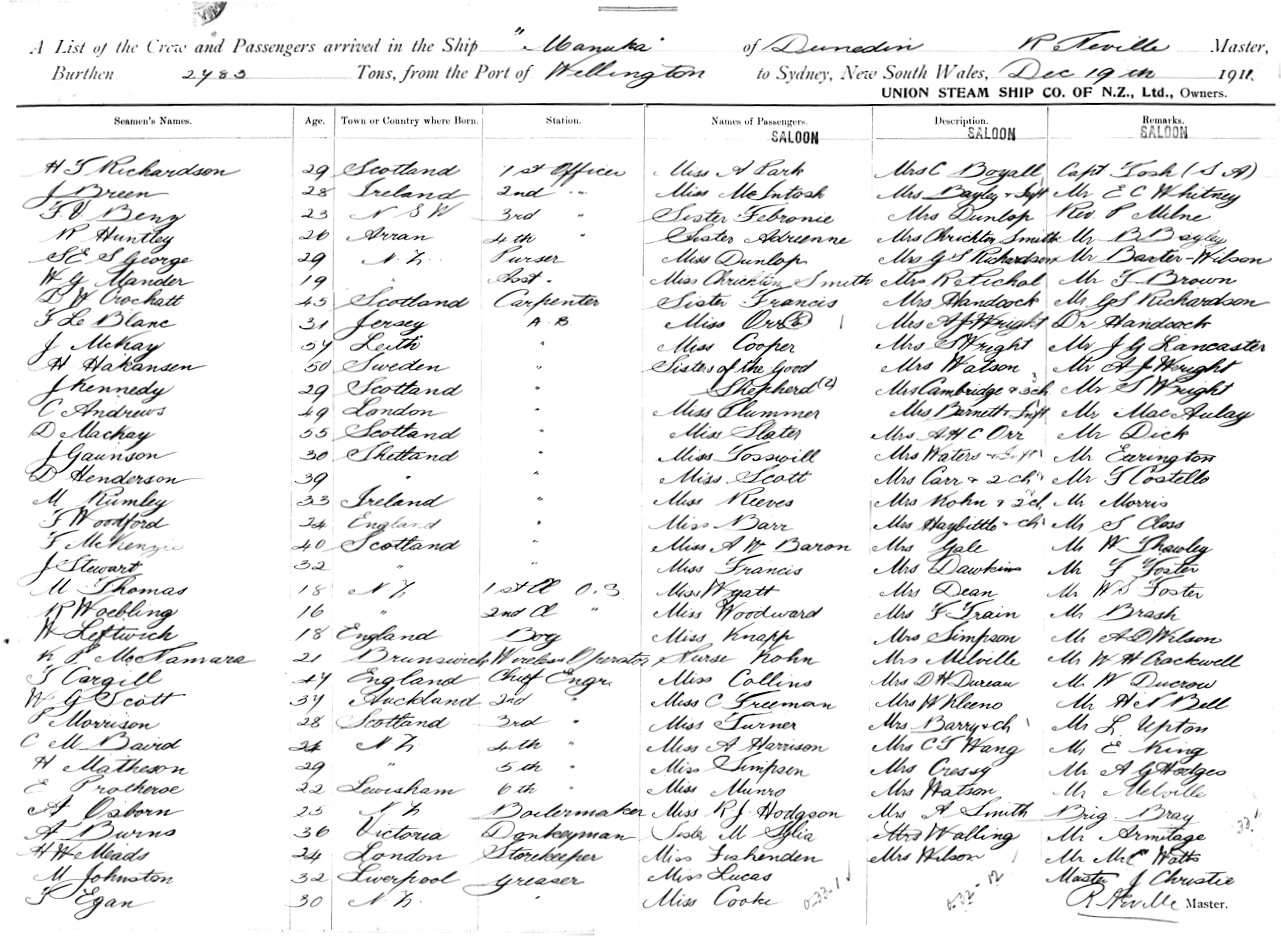 A List of the Crew and Passengers arrived in the Ship "Manuka" of Dunedin R Neville Master,
Burthen 2483 Tons, from the Port of Wellington to Sydney, New South Wales, Dec 19th 1911.
UNION STEAM SHIP CO. OF N.Z., Ltd., Owners.
Seamen's Names. Age. Town or Country where Born. Station. Names of Passengers. Description. Remarks.
SALOON SALOON SALOON
H T Richardson 29 Scotland 1st Officer Miss A Park Mrs C Boyall Capt Tosh (S A)
J Breen 28 Ireland 2nd " Miss McIntosh Mrs Bayley & Inft Mr E C Whitney
F V Beny 23 N S W 3rd " Sister Febronie Mrs Dunlop Rev. P Milne
R Huntley 26 Arran 4th " Sister Adrienne Mrs Chrichton Smith Mr B Bayley
S E S George 29 N Z. Purser Miss Dunlop Mrs G S Richardson Mr Baxter-Wilson
W G Mander 19 " Asst. Miss Chrichton Smith Mrs R Petichol Mr T Brown
D W Crochatt 45 Scotland Carpenter Sister Francis Mrs Handcock Mr G S Richardson
F Le Blanc 31 Jersey A.B Miss Orr (2) Mrs A J Wright Dr Handcock
J McKay 54 Leith " Miss Cooper Mrs S Wright Mr J G Lancaster
H Hakansen 50 Sweden " Sisters of the Good Mrs Watson Mr A J Wright
J Kennedy 29 Scotland " Shepherd (2) Mrs Cambridge & 3ch Mr S Wright
C Andrews 49 London " Miss Plummer Mrs Barnett & Inft Mr MacAulay
D Mackay 55 Scotland " Miss Slater Mrs A H C Orr Mr Dick
J Gaunson 30 Shetland " Miss Tosswill Mrs Waters & Inft Mr Earington
D Henderson 39 " " Miss Scott Mrs Carr & 2 ch Mr T Costello
M Rumley 33 Ireland " Miss Reeves Mrs Kohn & 2ch Mr Morris
T Woodford 24 England " Miss Barr Mrs Haybittle & ch Mr S Closs
T McKenzie 40 Scotland " Miss A W Baron Mrs Gale Mr W Thawley
J Stewart 32 " " Miss Francis Mrs Dawkins Mr T Foster
M Thomas 18 N Z 1st Cl O.S Miss Wyatt Mrs Dean Mr W S Foster
R Woebling 16 " 2nd Cl " Miss Woodward Mrs F Train Mr Brash
W Leftwich 18 England Boy Miss Knapp Mrs Simpson Mr A D Wilson
K P McNamara 21 Brunswich Wireless Operator Nurse Kohn Mrs Melville Mr W H Crackwell
T Cargill 47 England Chief Engr. Miss Collins Mrs D H Dureau Mr W Ducrow
W G Scott 34 Auckland 2nd " Miss C Freeman Mrs W Kleeno Mr H N Bell
P Morrison 28 Scotland 3rd " Miss Turner Mrs Barry & ch Mr L Upton
C M Baird 24 N Z 4th " Miss A Harrison Mrs C T Wang Mr E King
H Matheson 29 " 5th " Miss Simpson Mrs Cressy Mr A G Hodges
E Protheroe 22 Lewisham 6th " Miss Munro Mrs Watson Mr Melville
A Osborn 25 N Z Boilermaker Miss R J Hodgson Mrs A Smith Brig. Bray
A Burns 36 Victoria Donkeyman Sister M Sylia Mrs Walling Mr Armitage
H W Meads 24 London Storekeeper Miss Fishenden Mrs Wilson Mr McC Watts
M Johnston 32 Liverpool Greaser Miss Lucas Master J Christie
T Egan 30 N Z. " Miss Cooke 0-33-1 0-32-12 R Neville Master.